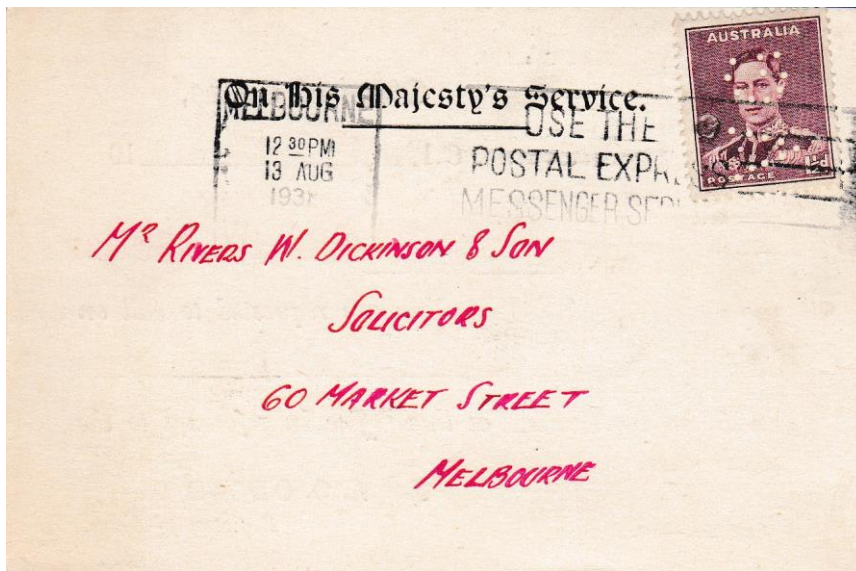 AUSTRALIA
On His Majesty's Service.
MELBOURNE
12 30 PM
13 AUG
USE THE
POSTAL
MESSENGER
POSTAGE
1½d
Mr RIVERS W. DICKINSON & SON
SOLICITORS
60 MARKET STREET
MELBOURNE